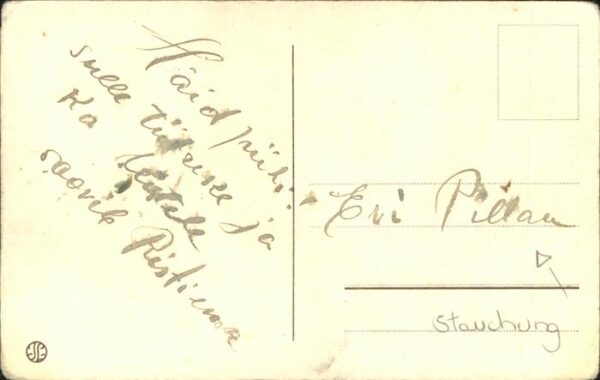 Häid pühi.
sulle tüdruke ja
ka
soovib Ristiema
Evi Pillau
Stauchung